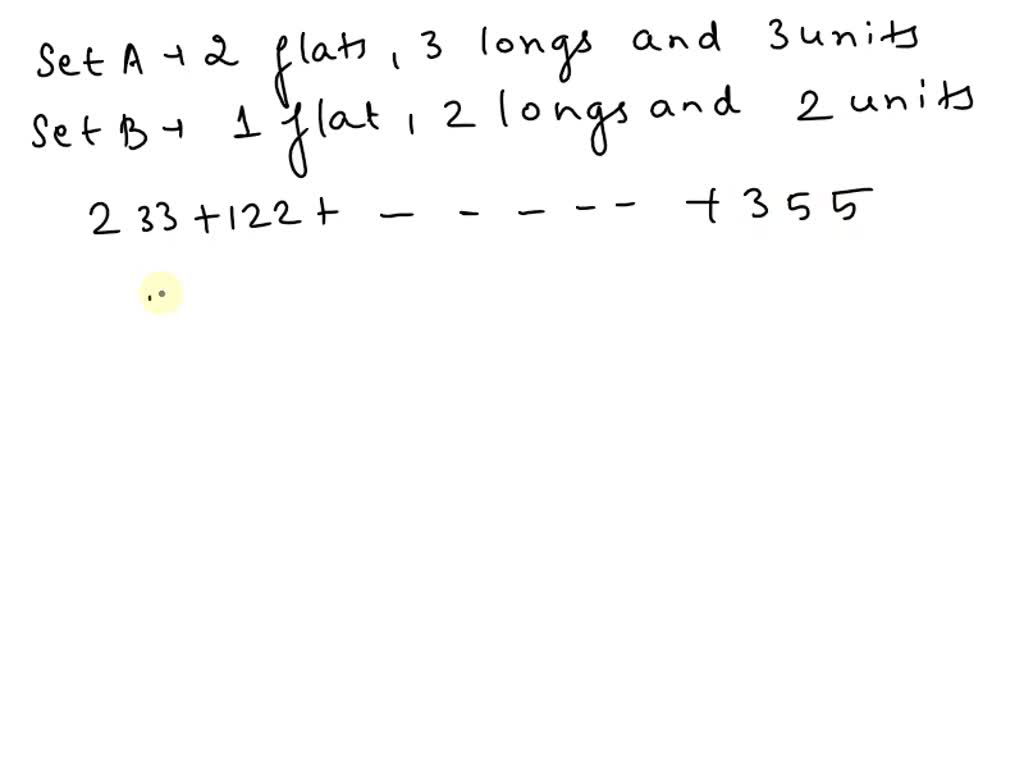 Set A → 2 flats, 3 longs and 3 units
Set B → 1 flat, 2 longs and 2 units
233 + 122 + - - - - - + 355